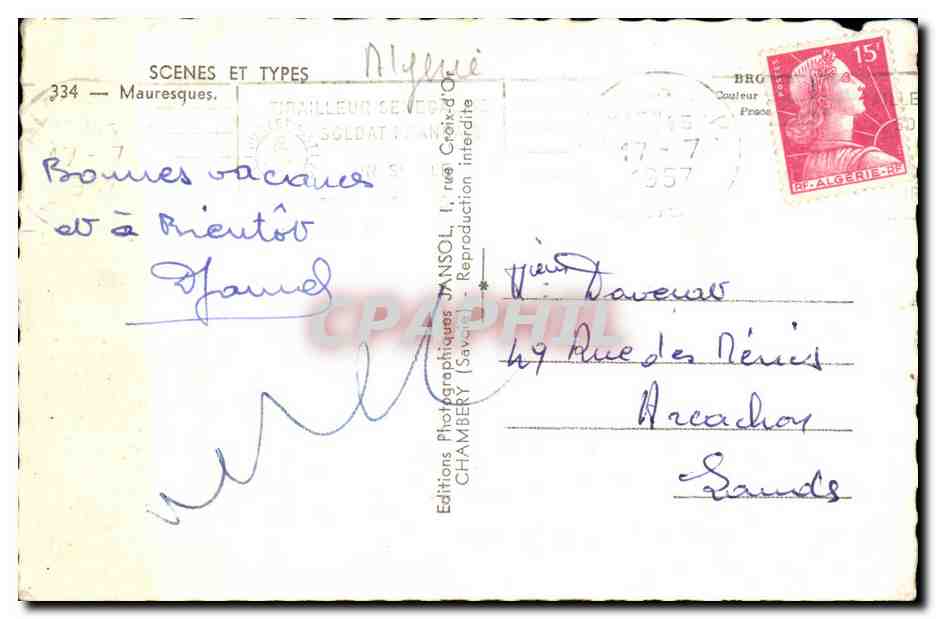 SCENES ET TYPES
334 — Mauresques.
Algerie
BRO
Couleur
15F
POSTES
RF-ALGERIE-RF
TIRAILLEUR
SOLDAT
17-7
17-7
1957
Bonnes vacances
et à Bientôt
Editions Photographiques JANSOL, 1, rue Croix-d'Or,
CHAMBERY (Savoie) - Reproduction interdite
CPAPHIL
Daverat
49 Rue des
Arcachon
Landes